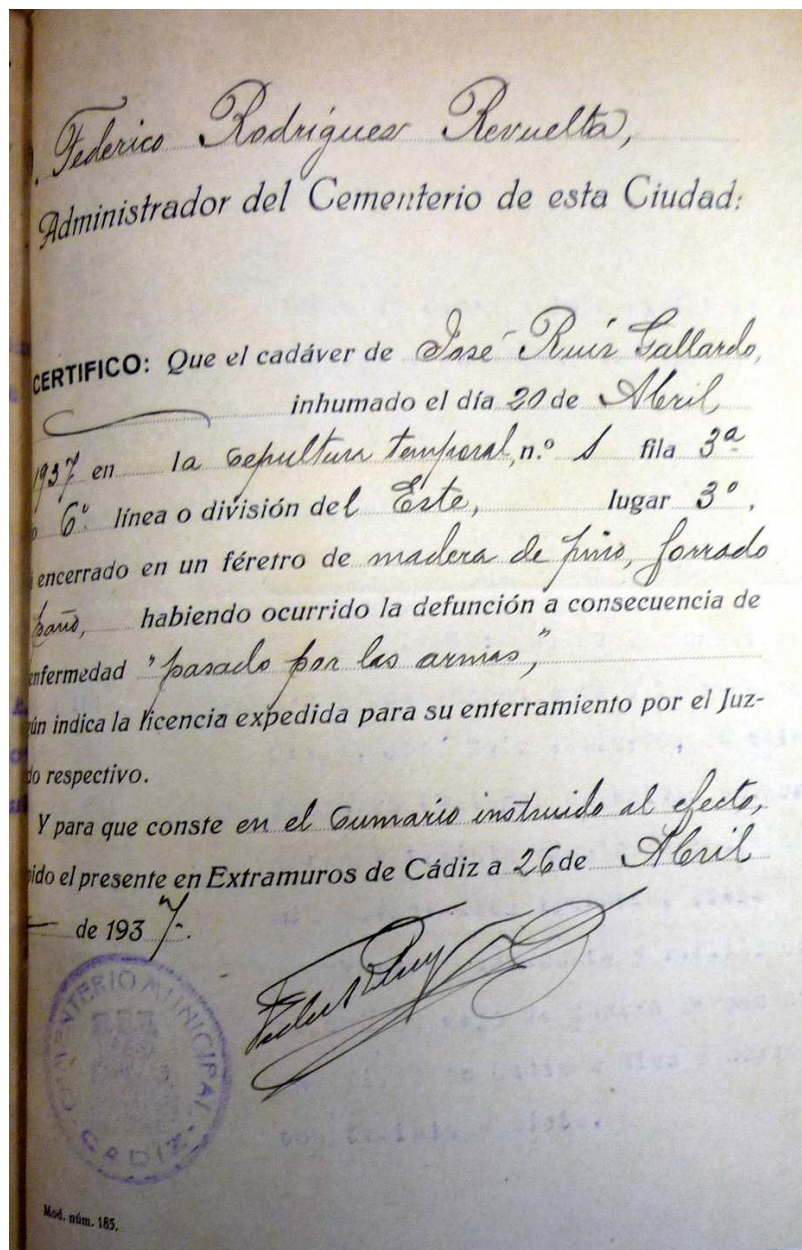 . Federico Rodríguez Revuelta,
Administrador del Cementerio de esta Ciudad:
CERTIFICO: Que el cadáver de José Ruíz Gallardo,
inhumado el día 20 de Abril
1937 en la sepultura temporal, n.º 1 fila 3ª
o 6º línea o división del Este, lugar 3º,
encerrado en un féretro de madera de pino, forrado
paño, habiendo ocurrido la defunción a consecuencia de
enfermedad "pasado por las armas,"
ún indica la licencia expedida para su enterramiento por el Juz-
do respectivo.
Y para que conste en el Sumario instruido al efecto,
pido el presente en Extramuros de Cádiz a 26 de Abril
de 1937.
CEMENTERIO MUNICIPAL
CADIZ
Mod. núm. 185.